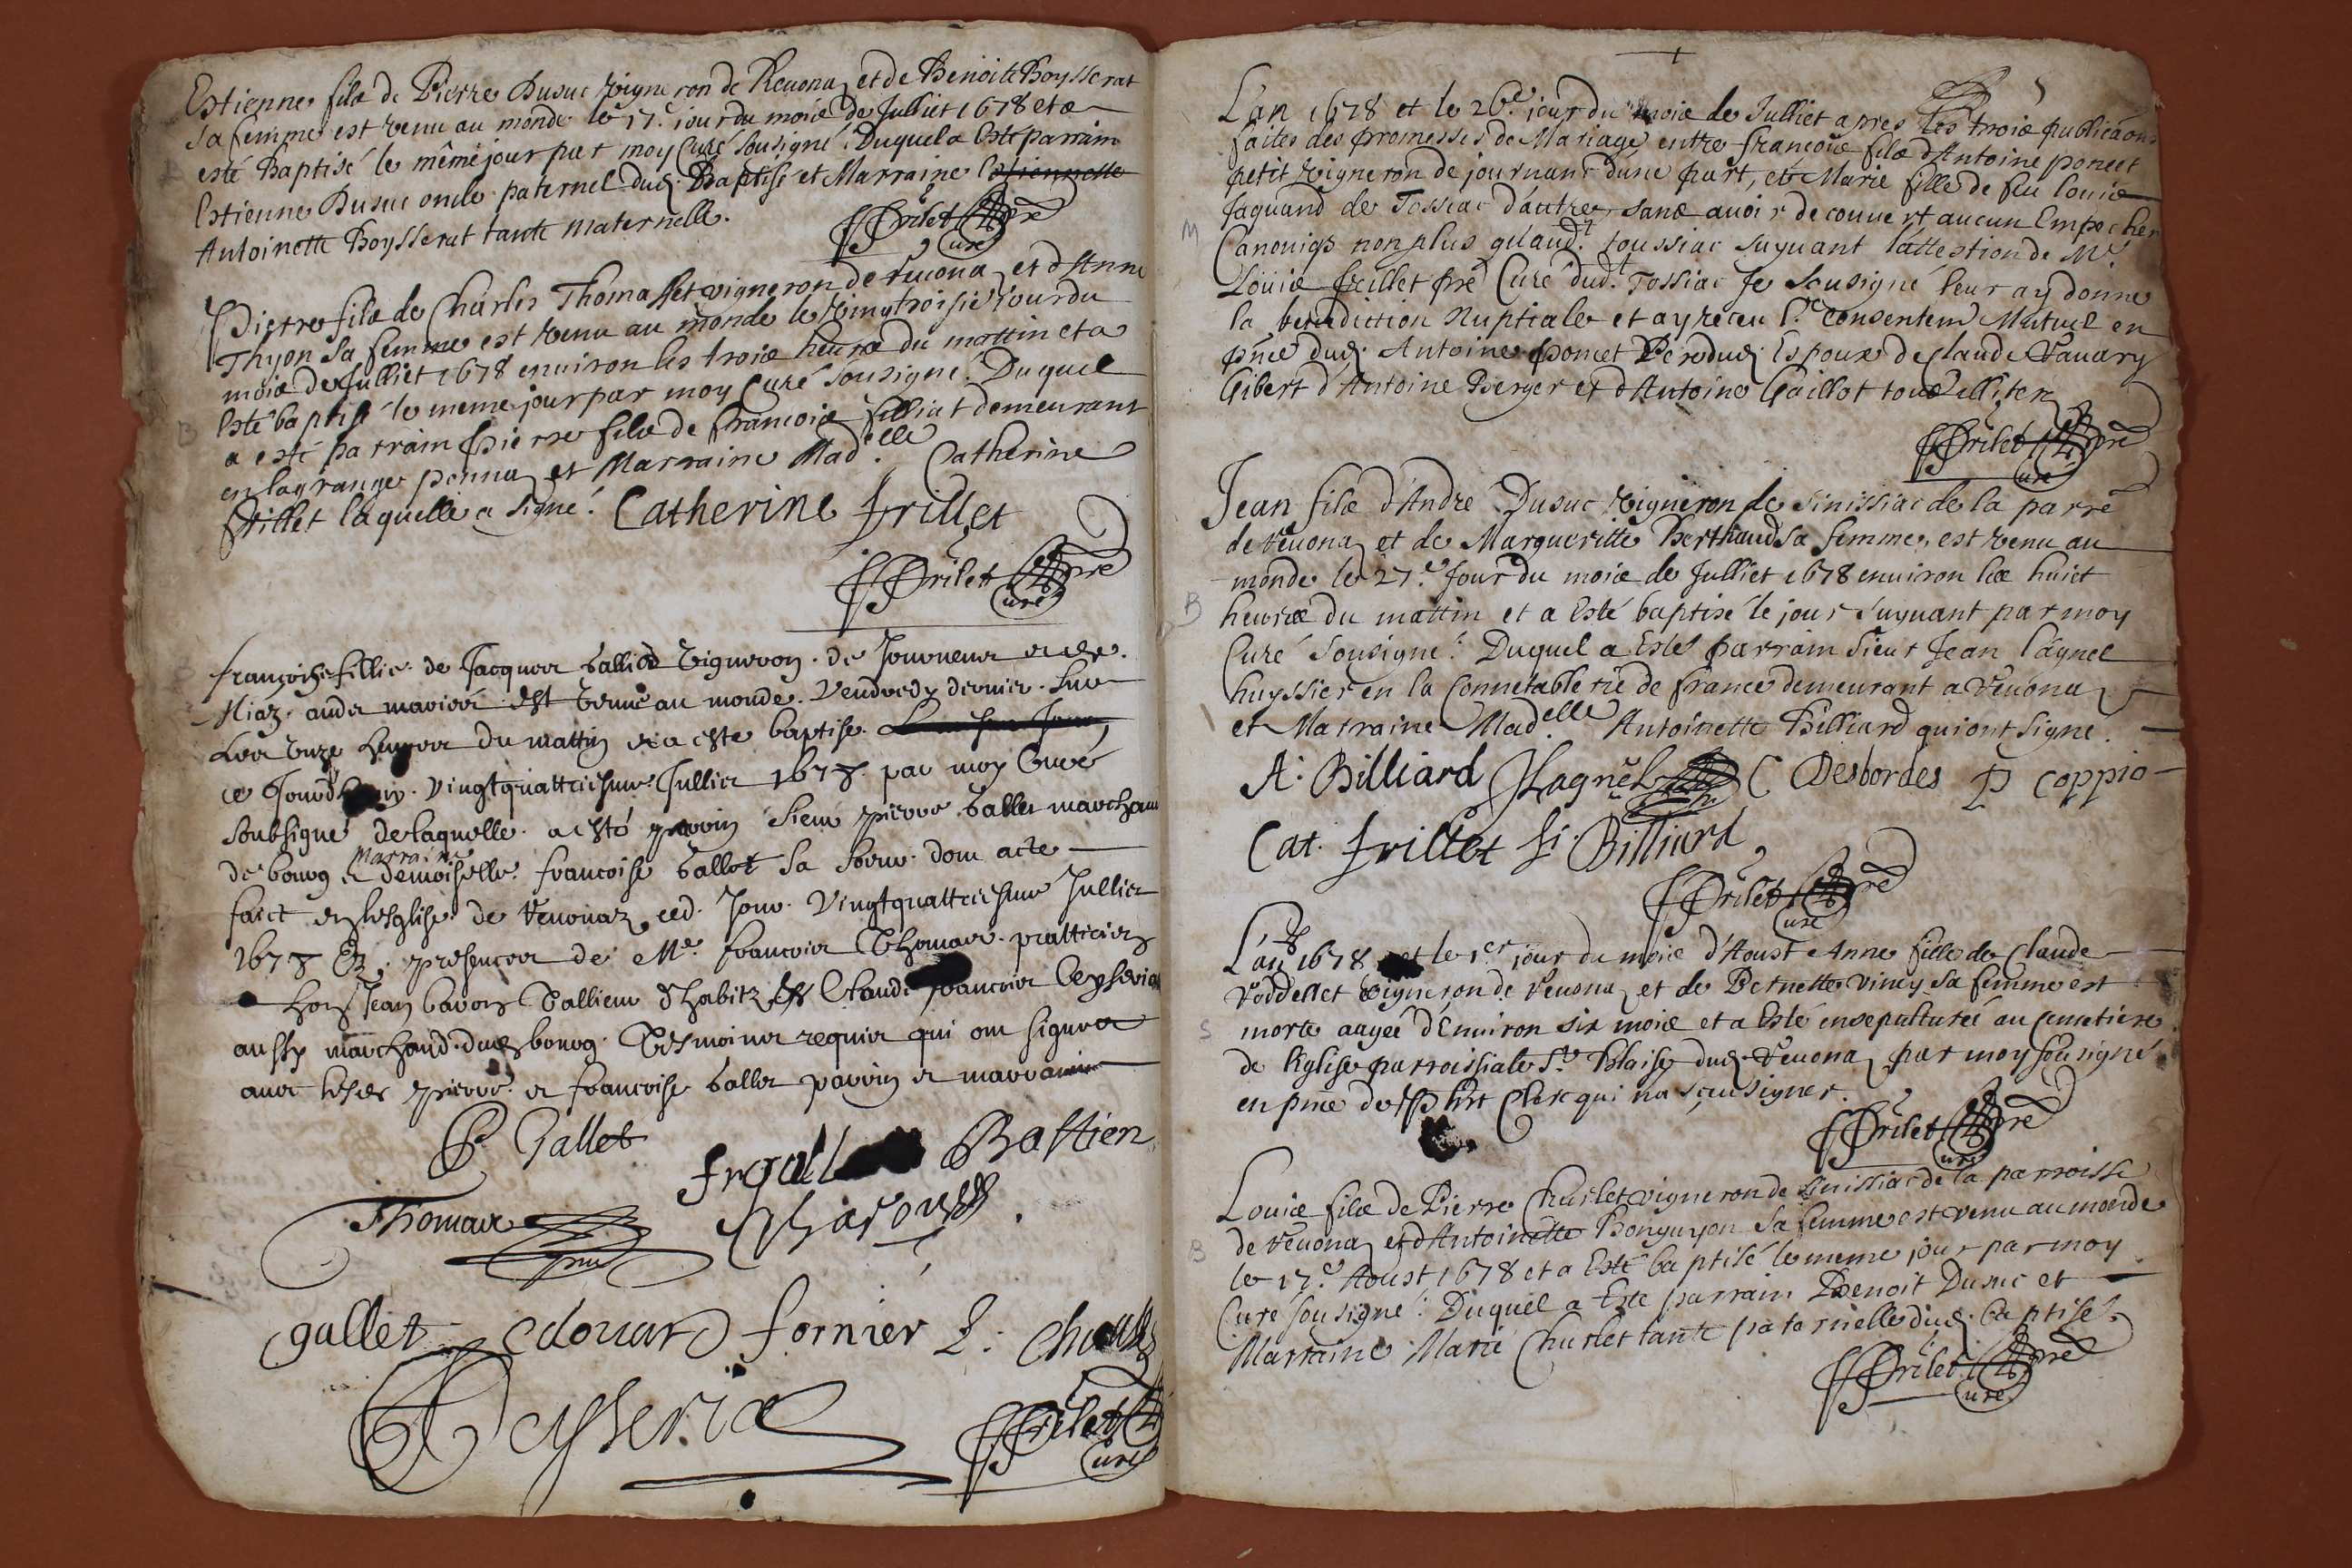 Estienne fils de Pierre Dusuc vigneron de Reuona et de Benoite Boysserat
sa femme est venu au monde le 17e jour du mois de Julliet 1678 et a
esté Baptisé le même jour par moy Curé sousigné. Duquel a Esté parrain
Estienne Dusuc oncle paternel dud. Baptisé et Marraine Estiennette
Antoinette Boysserat tante maternelle.
FFrilet pre
Curé
B
Pierre fils de Charles Thomasset vigneron de Reuona et d'Anne
Thyon sa femme est venu au monde le vingtroisie jour du
mois de Julliet 1678 enuiron les trois heures du mattin et a
Esté baptisé le meme jour par moy Curé sousigné. Duquel
a esté parrain Pierre fils de francois filliat demeurant
en la grange penna et Marraine Madelle Catherine
frillet laquelle a signé. Catherine frillet
FFrilet pre
Curé
françoise fillie de Jacques
vigneron de Journens et de
Miaz. ande mariés est venue au monde Vendredy dernier sur
les unze heures du mattin et a esté baptisé
ce Jourdhuy vingtquattriesme Jullier 1678 par moy Curé
soubsigné de laquelle a esté parrin sieur pierre Gallet marchand
Marraine
de bourg et demoiselle françoise Gallet sa soeur dont acte
faict en lesglise de Reuonaz ced. Jour vingtquattriesme Jullier
1678 Ez presences de Me francois Thomas pratticien
Jean
Claude francois Teysserias
aussy marchand dud bourg tesmoins requis qui ont signés
auec lesd pierre et francoise Gallet parrin et marraine
P. Gallet
fr gall Bastien
Thomas
Gharons
gallet edouard fornier L.
Deysserias
FFrilet
Curé
L'an 1678 et le 26e jour du mois de Julliet apres les trois publicaõns
faites des promesses de Mariage entre francois fils d'Antoine poncet
petit vigneron de journans d'une part, et Marie fille de feu louis
Jaquand de Tossiac d'autre, sans auoir decouuert aucun Empecher
M
Canoniqs non plus qu'aud. Toussiac suyuant l'attestion de Mr
Louis frillet pre Curé dud. Tossiac Je sousigné leur ay donné
la benediction Nuptiale et ay receu le consentem Mutuel en
pnce dud. Antoine poncet Pere dud. Espoux de Claude Vauary
Gibert d'Antoine Berger et d'Antoine Gaillot tous Illiter
FFrilet pre
Curé
Jean fils d'André Dusuc vigneron de Sinissiac de la parre
de Reuona et de Margueritte Berthaud sa femme, est venu au
monde le 27e Jour du mois de Julliet 1678 enuiron les huict
B
heures du mattin et a Esté baptisé le jour suyuant par moy
Curé sousigné. Duquel a Esté parrain sieur Jean lagnel
huyssier en la Connetablerie de france demeurant a Reuona
et Marraine Madelle Antoinette Billiard qui ont signé.
A. Billiard JLagnel C Desbordes P coppio
Cat. frillet fr. Billiard
FFrilet pre
Curé
L'an 1678 et le 1er jour du mois d'Aoust Anne fille de Claude
Voddellet vigneron de Reuona et de Pernette viney sa femme est
S
morte aagée d'Enuiron six mois et a Esté ensepulturée au cemetiere
de l'église parroissiale St. Blaise dud. Reuona par moy sousigné
en pnce de Clerc qui n'a sçeu signer.
FFrilet pre
Curé
Louis fils de Pierre Churlet vigneron de Sinissiac de la parroisse
de Reuona et d'Antoinette Bonguyon sa femme est venu au monde
B
le 17e Aoust 1678 et a Esté baptisé le meme jour par moy
Curé sousigné. Duquel a Esté parrain Benoit Dusuc et
Marraine Marie Churlet tante paternelle dud. baptisé.
FFrilet pre
Curé